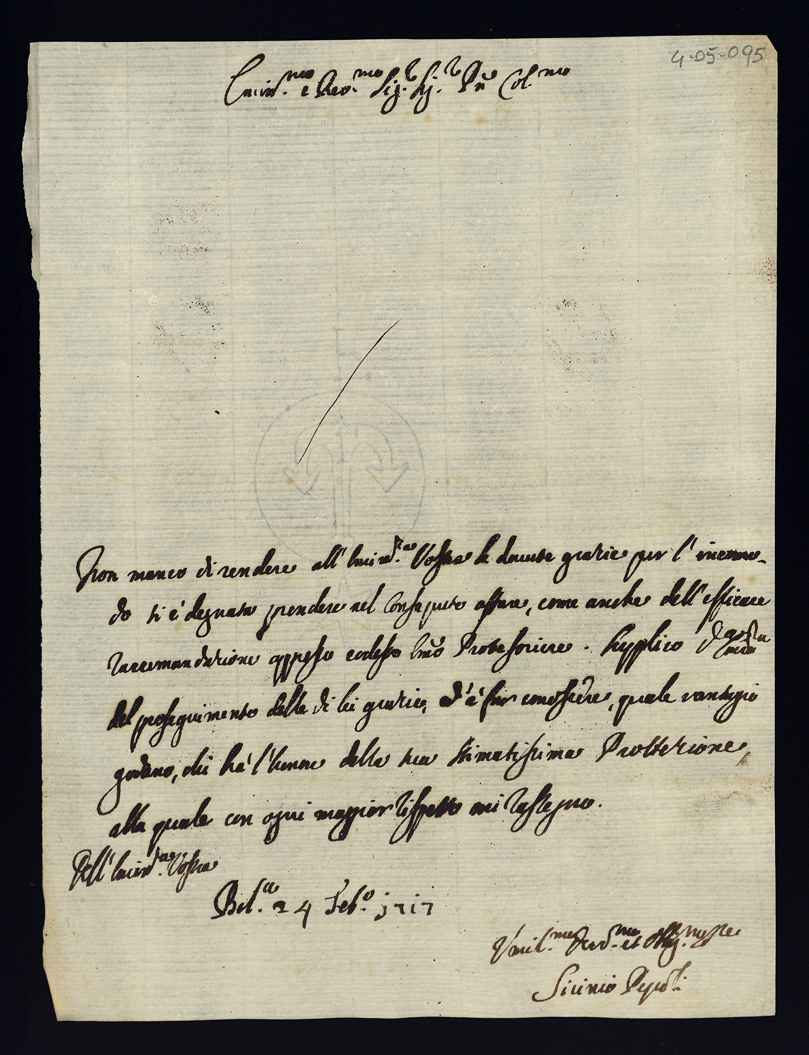 4-05-095
Emin.mo e Rev.mo Sig.r Sig.r Pne Col.mo
Non manco di rendere all' Emin.za Vostra le dovute grazie per l' incomo-
do si è degnata prendere nel consaputo affare, come anche dell' efficace
raccomandazione appresso codesto Propostoriere. Supplico
del proseguimento delle di lei grazie, e à far conoscere, quale vantagio
godano, chi hà l' honore della sua stimatissima Prottezione,
alla quale con ogni maggior rispetto mi rassegno.
Dell' Emin.za Vostra
Bol.a 24 Feb.o 1717
Umil.mo Dev.mo et Obbl.mo
Sicinio Pepoli